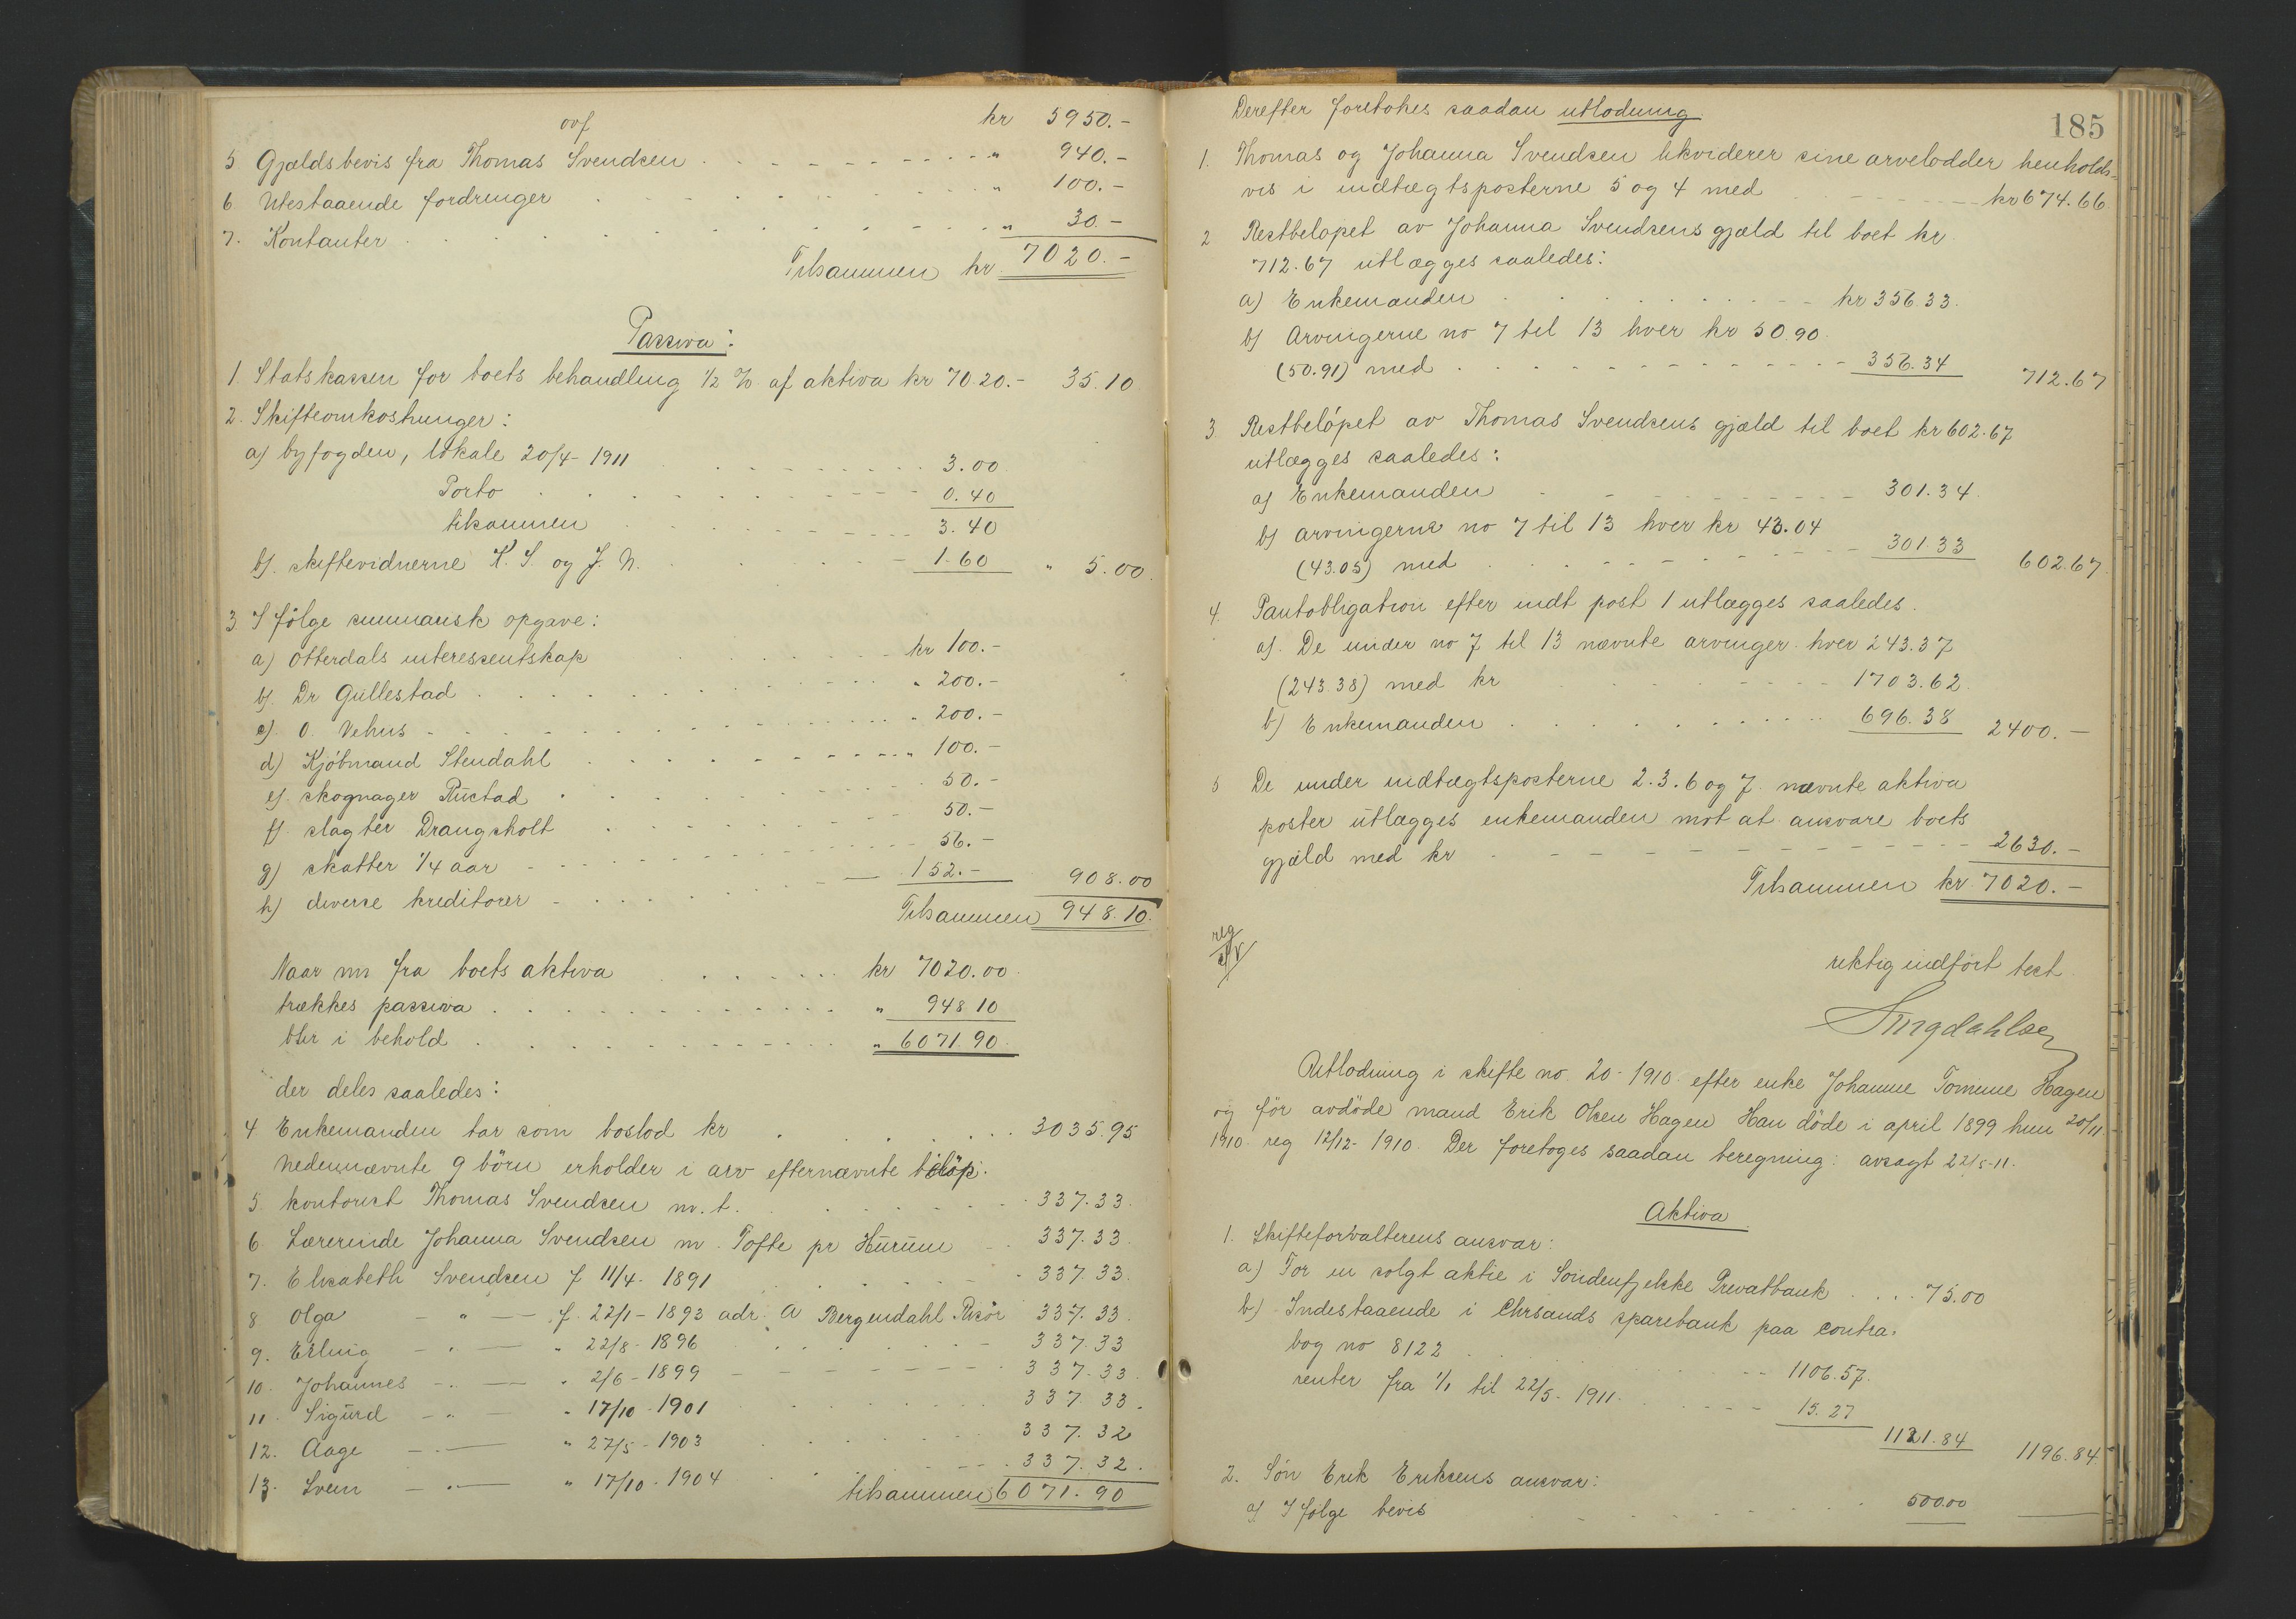 ovf kr 5950.-
5 Gjældsbevis fra Thomas Svendsen " 940.-
6 Utestaaende fordringer " 100.-
7. Kontanter " 30.-
Tilsammen kr. 7020.-
Passiva:
1. Statskassen for boets behandling 1/2 % af aktiva kr 7020.- 35.10
2. Skifteomkostninger:
a) byfogden, lokale 20/4-1911 3.00
Porto 0.40
tilsammen 3.40
b). skiftevidnerne K. S. og J. N. 1.60 " 5.00.
3 I følge summarisk opgave:
a) Otterdals interessentskap kr 100.-
b). Dr Gullestad " 200.-
c). O. Vehus " 200.-
d) Kjøbmand Stendahl " 100.-
e). skognager Rustad 50.-
f). slagter Drangsholt 50.-
g) skatter 1/4 aar 56.-
h) diverse kreditorer 152.- 908.00
Tilsammen 948.10.
Naar nu fra boets aktiva kr 7020.00
trækkes passiva " 948 10
blir i behold " 6071 90
der deles saaledes:
4 Enkemanden tar som boslod kr 3035.95
Nedennævnte 9 børn erholder i arv efternævnte beløp:
5 kontorist Thomas Svendsen m. t. 337.33.
6. Lærerinde Johanna Svendsen m. Tofte pr Hurum 337.33.
7. Elisabeth Svendsen f 11/4-1891 337.33.
8 Olga - " - f. 22/1-1893 adr. A Bergendahl. Risør 337.33.
9. Erling - " - " 22/8-1896 337.33
10. Johannes - " - " 2/6-1899 337.33.
11. Sigurd - " - " 17/10-1901 337.33.
12. Aage - " - " 27/5-1903 337.32
13. Svein - " - " 17/10-1904 337.32.
tilsammen 6071.90
185
Derefter foretokes saadan utlodning
1. Thomas og Johanna Svendsen likviderer sine arvelodder henholds-
vis i indtægtsposterne 5 og 4 med kr 674.66
2 Restbeløpet av Johanna Svendsens gjæld til boet kr
712.67 utlægges saaledes:
a) Enkemanden kr 356 33.
b) Arvingerne no 7 til 13 hver kr 50.90.
(50.91) med 356.34 712.67
3. Restbeløpet av Thomas Svendsens gjæld til boet kr 602.67
utlægges saaledes:
a) Enkemanden 301.34.
b) arvingerne no 7 til 13 hver kr 43.04
(43.05) med 301.33 602.67
4. Pantobligation efter indt post 1 utlægges saaledes.
a). De under no 7 til 13 nævnte arvinger hver 243.37
(243.38) med kr 1703.62.
b) Enkemanden 696.38 2400.-
5 De under indtægtsposterne 2.3.6 og 7. nævnte aktiva
poster utlægges enkemanden mot at ansvare boets
gjæld med kr 2630.-
Tilsammen kr 7020.-
reg
riktig indført test.
Utlodning i skifte no. 20-1910. efter enke Johanne Tomine Hagen
og før avdøde mand Erik Olsen Hagen Han døde i april 1899 hun 20/11.
1910. reg 12/12-1910. Der foretoges saadan beregning: avsagt 22/5-11.
Aktiva
1. Skifteforvalterens ansvar:
a) For en solgt aktie i Søndenfjelske Privatbank 75.00
b) Indestaaende i Chrsands sparebank paa contra-
bog no 8122 1106.57.
renter fra 1/1 til 22/5-1911. 15.27
1121.84 1196.84
2. Søn Erik Eriksens ansvar:
a) I følge bevis 500.00